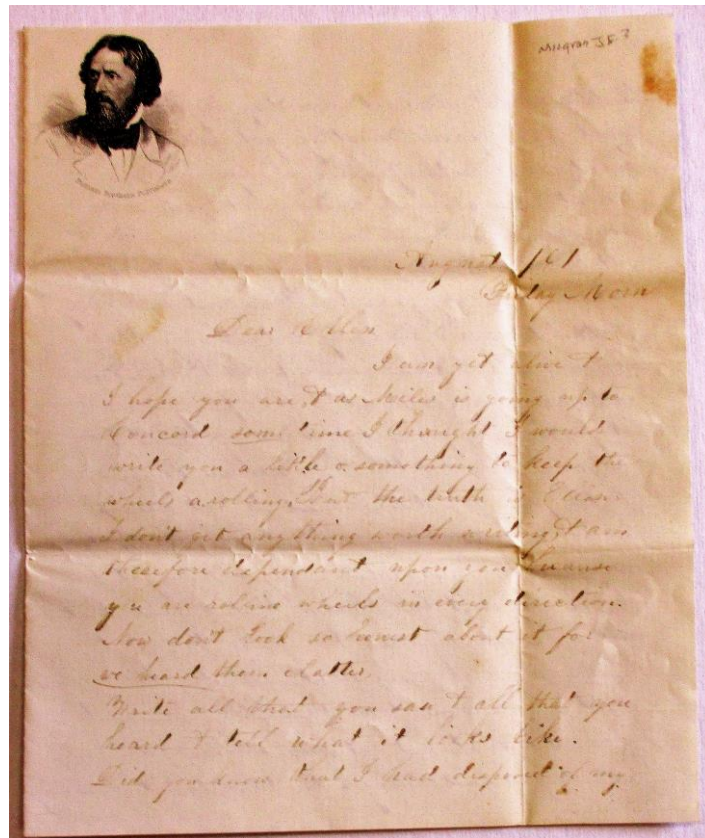 August 161
Friday Morn
Dear Ellen
I am yet alive &
I hope you are, & as Miles is going up to
Concord some time I thought I would
write you a little o. something to keep the
wheels a rolling. But the truth is
I don't get anything worth & am
therefore dependant upon you
you are rolling wheels in every direction.
Now don't look so honest about it for
we heard them clatter.
Write all that you saw & all that you
heard & tell what it looks like.
Did you know that I had disposed of my